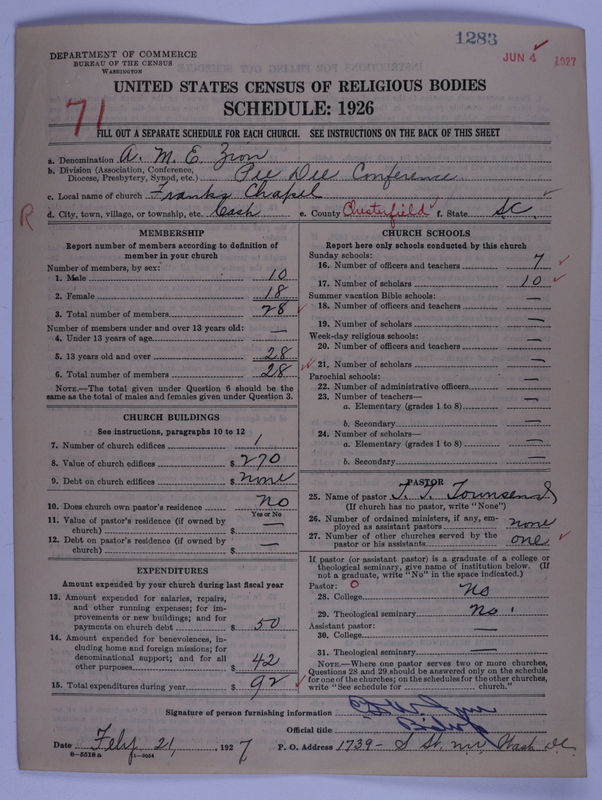 1283
JUN 4 1927
DEPARTMENT OF COMMERCE
BUREAU OF THE CENSUS
WASHINGTON
UNITED STATES CENSUS OF RELIGIOUS BODIES
SCHEDULE: 1926
71
FILL OUT A SEPARATE SCHEDULE FOR EACH CHURCH. SEE INSTRUCTIONS ON THE BACK OF THIS SHEET
a. Denomination A. M. E. Zion
b. Division (Association, Conference, Diocese, Presbytery, Synod, etc.) Pee Dee Conference
c. Local name of church Franks Chapel
R d. City, town, village, or township, etc. Cash e. County Chesterfield f. State SC
MEMBERSHIP
Report number of members according to definition of
member in your church
Number of members, by sex:
1. Male 10
2. Female 18
3. Total number of members 28
Number of members under and over 13 years old:
4. Under 13 years of age —
5. 13 years old and over 28
6. Total number of members 28
NOTE.—The total given under Question 6 should be
the same as the total of males and females given under Question 3.
CHURCH BUILDINGS
See instructions, paragraphs 10 to 12
7. Number of church edifices 1
8. Value of church edifices $270
9. Debt on church edifices $none
10. Does church own pastor's residence? no
Yes or No
11. Value of pastor's residence (if owned by
church) $ —
12. Debt on pastor's residence (if owned by
church) $ —
EXPENDITURES
Amount expended by your church during last fiscal year
13. Amount expended for salaries, repairs,
and other running expenses; for im-
provements or new buildings; and for
payments on church debt $ 50
14. Amount expended for benevolences, in-
cluding home and foreign missions; for
denominational support; and for all
other purposes $ 42
15. Total expenditures during year $ 92
CHURCH SCHOOLS
Report here only schools conducted by this church
Sunday schools:
16. Number of officers and teachers 7
17. Number of scholars 10
Summer vacation Bible schools:
18. Number of officers and teachers —
19. Number of scholars —
Week-day religious schools:
20. Number of officers and teachers —
21. Number of scholars —
Parochial schools:
22. Number of administrative officers —
23. Number of teachers—
a. Elementary (grades 1 to 8) —
b. Secondary —
24. Number of scholars—
a. Elementary (grades 1 to 8) —
b. Secondary —
PASTOR
25. Name of pastor T. J. Townsend
(If church has no pastor, write "None")
26. Number of ordained ministers, if any, em-
ployed as assistant pastors none
27. Number of other churches served by the
pastor or his assistants one
If pastor (or assistant pastor) is a graduate of a college or
theological seminary, give name of institution below. (If
not a graduate, write "No" in the space indicated.)
Pastor: O
28. College No
29. Theological seminary No
Assistant pastor:
30. College —
31. Theological seminary —
NOTE.—Where one pastor serves two or more churches,
Questions 28 and 29 should be answered only on the schedule
for one of the churches; on the schedules for the other churches,
write "See schedule for church."
Signature of person furnishing information
Official title Bishop
Date Feby 21, 1927 P. O. Address 1739- S St. nw Wash DC
8-5518a 11-9054